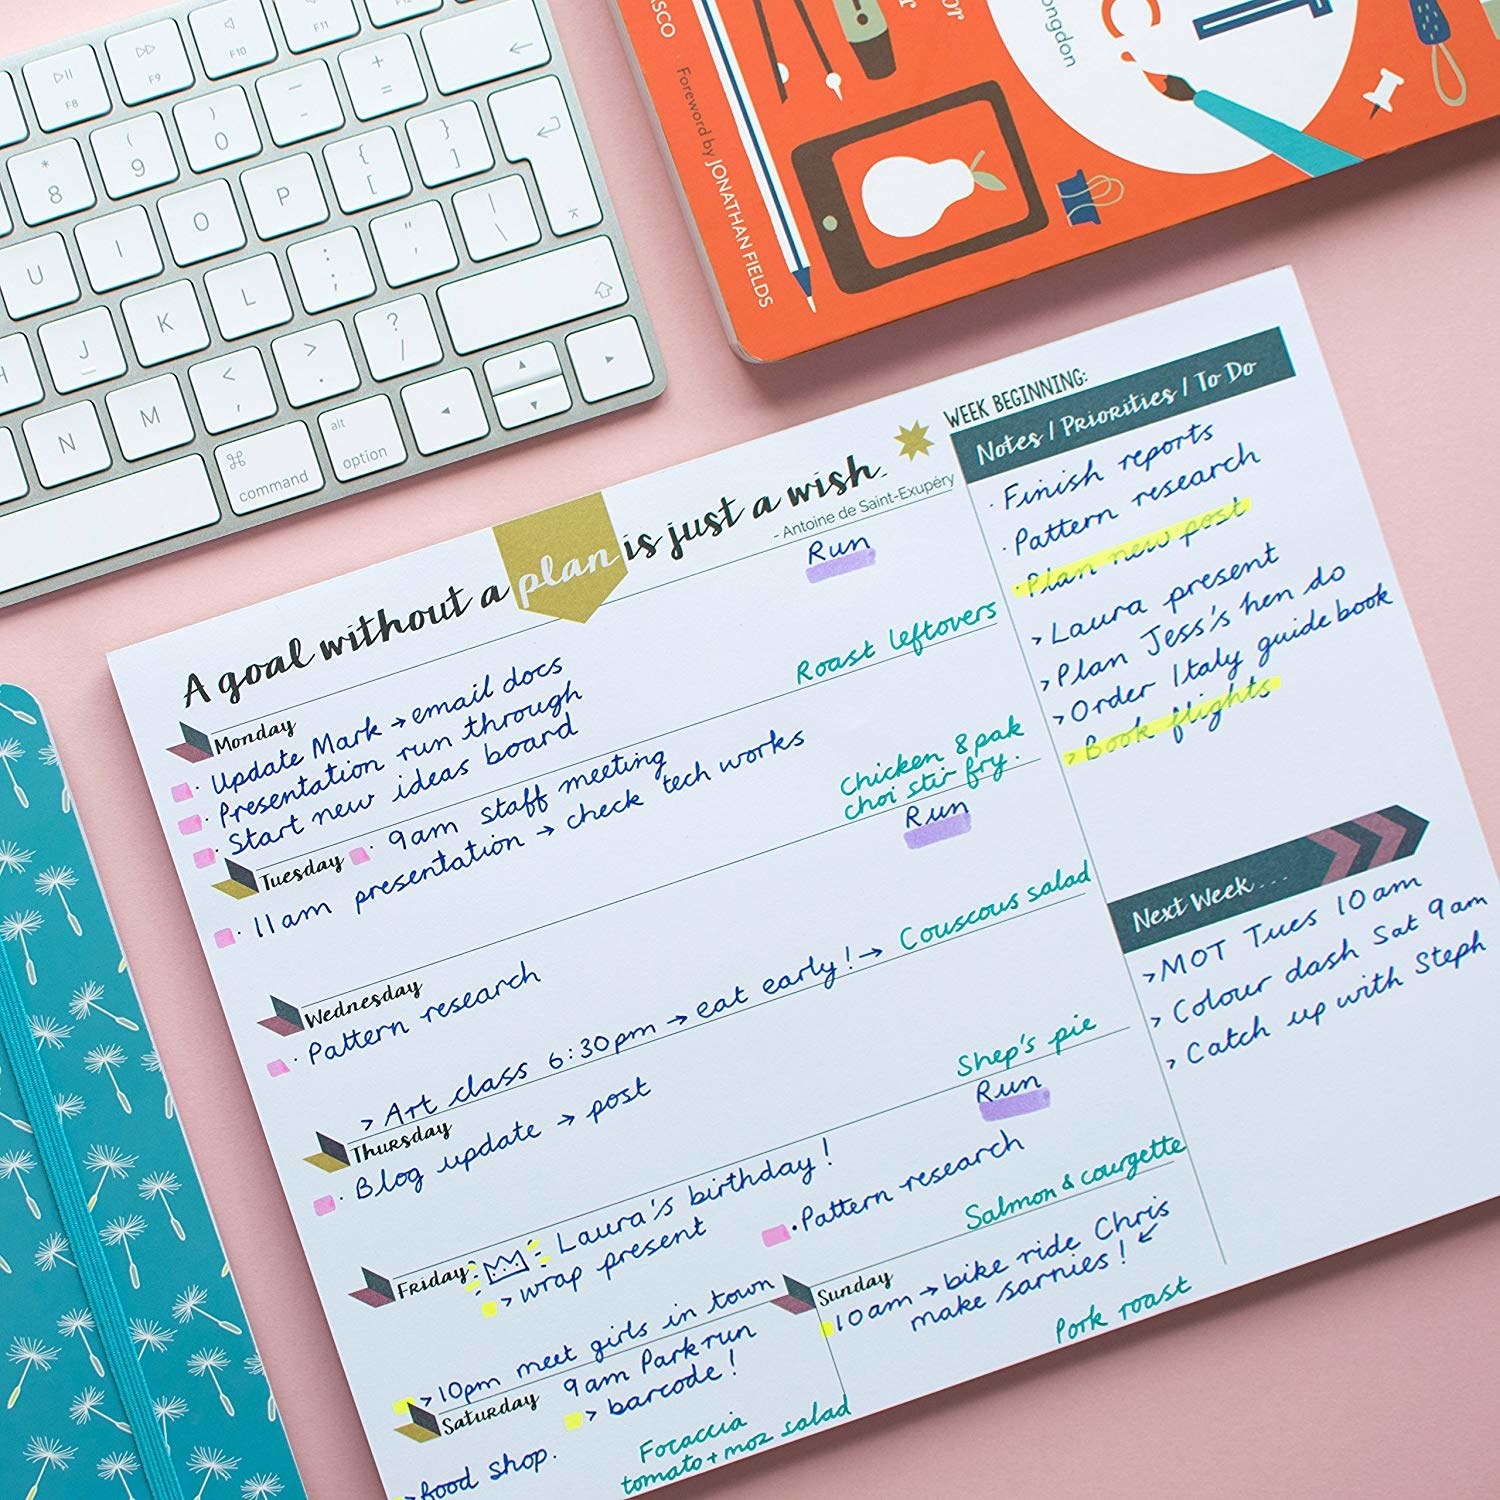 F8
F9
F10
F11
F12
*
8
(
9
)
0
-
+
=
U
I
O
P
{
[
}
]
J
K
L
:
;
"
'
|
\
N
M
<
,
>
.
?
/
⌘
command
alt
option
Foreword by JONATHAN FIELDS
ongdon
A goal without a plan is just a wish.
- Antoine de Saint-Exupéry
WEEK BEGINNING:
Run
Monday
Roast leftovers
· Update Mark → email docs
· Presentation run through
· Start new ideas board
Tuesday
· 9am staff meeting
· 11am presentation → check tech works
Chicken & pak
choi stir fry.
Run
Wednesday
· Pattern research
> Art class 6:30pm → eat early! → Couscous salad
Thursday
· Blog update → post
Shep's pie
Run
Friday
Laura's birthday!
> wrap present
· Pattern research
> 10pm meet girls in town
Salmon & courgette
Saturday
9am Parkrun
> barcode!
> food shop.
Focaccia
tomato + moz salad
Sunday
10am → bike ride Chris
make sarnies! ↙
Pork roast
Notes / Priorities / To Do
· Finish reports
· Pattern research
· Plan new post
> Laura present
> Plan Jess's hen do
> Order Italy guidebook
> Book flights
Next Week...
> MOT Tues 10am
> Colour dash Sat 9am
> Catch up with Steph